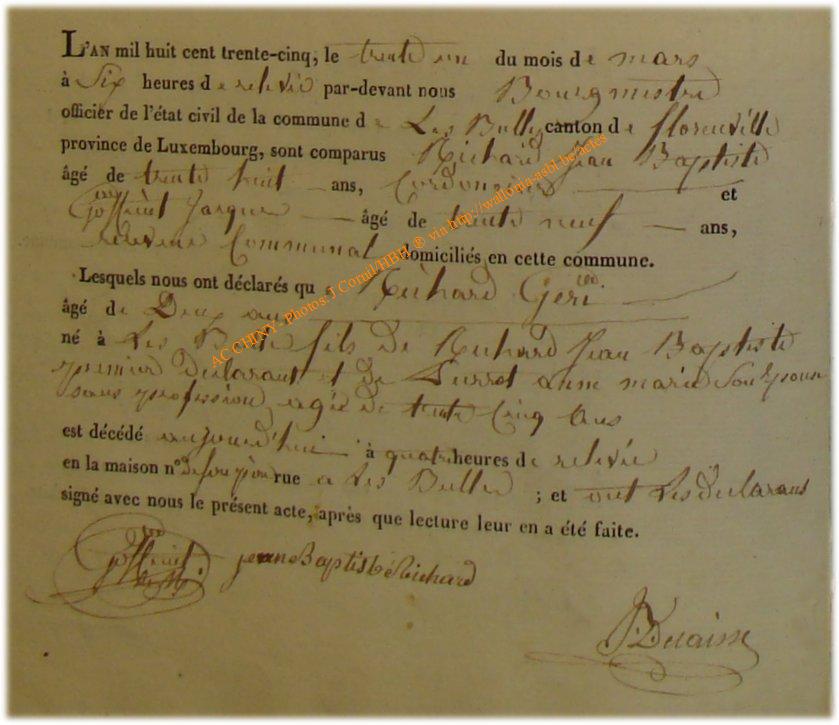 L'AN mil huit cent trente-cinq, le trente un du mois de mars
à Six heures de relevée par-devant nous Bourgmestre
officier de l'état civil de la commune de Les Bulles canton de florenville
province de Luxembourg, sont comparus Richard Jean Baptiste
âgé de trente huit ans, Cordonnier et
Goffinet Jacques âgé de trente neuf ans,
Communal domiciliés en cette commune.
Lesquels nous ont déclarés qu Richard Geri
âgé de Deux ans
né à Les Bulles fils de Richard Jean Baptiste
premier declarant et de anne marie Son epouse
sans profession agée de trente Cinq ans
est décédé aujourd'hui à quatre heures de relevée
en la maison n° de son père rue a Les Bulles ; et ont Les declarans
signé avec nous le présent acte, après que lecture leur en a été faite.
Goffinet jeane Baptiste Richard
AC CHINY - Photos: J Cornil/HBH ® via http://wallonia-asbl.be/actes